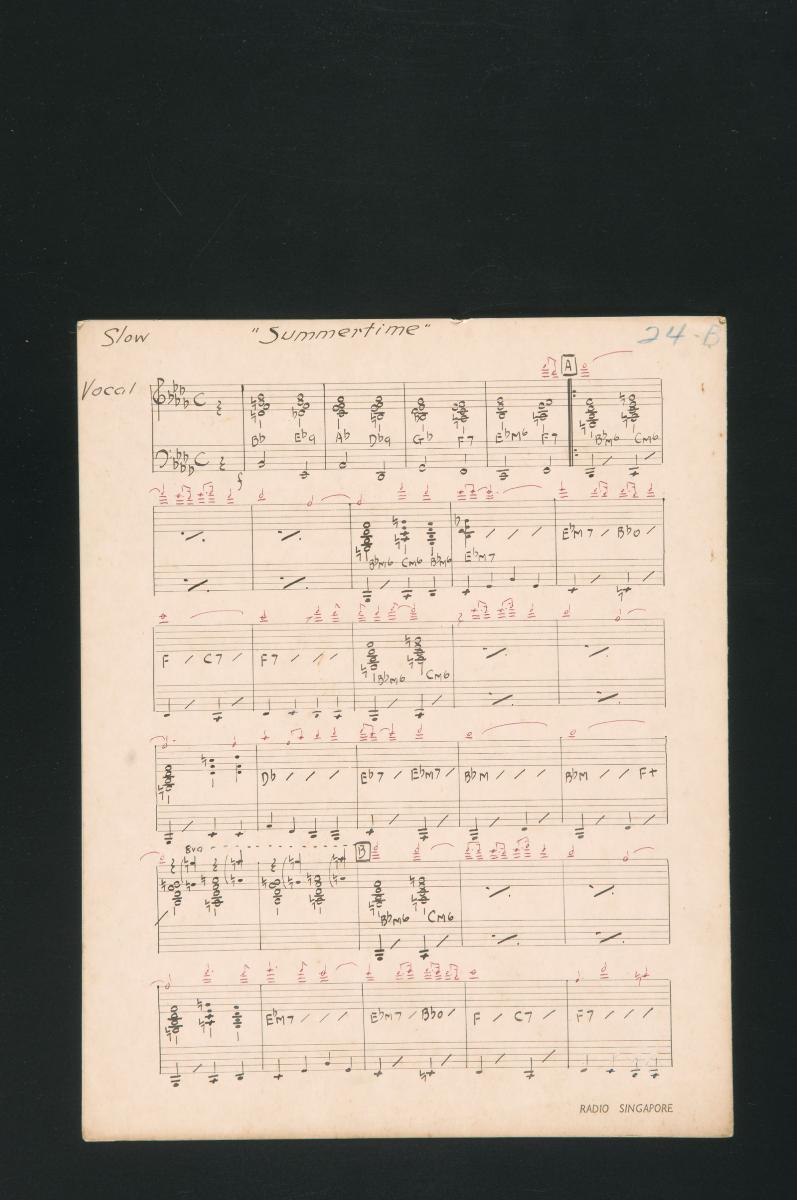 Slow "Summertime" 24-B
Vocal A
Bb Eb9 Ab Db9 Gb F7 EbM6 F7 BbM6 CM6
f
BbM6 CM6 BbM6 EbM7 EbM7 Bbo
F C7 F7 BbM6 CM6
Db Eb7 EbM7 BbM BbM F+
8va B
BbM6 CM6
EbM7 EbM7 Bbo F C7 F7
RADIO SINGAPORE